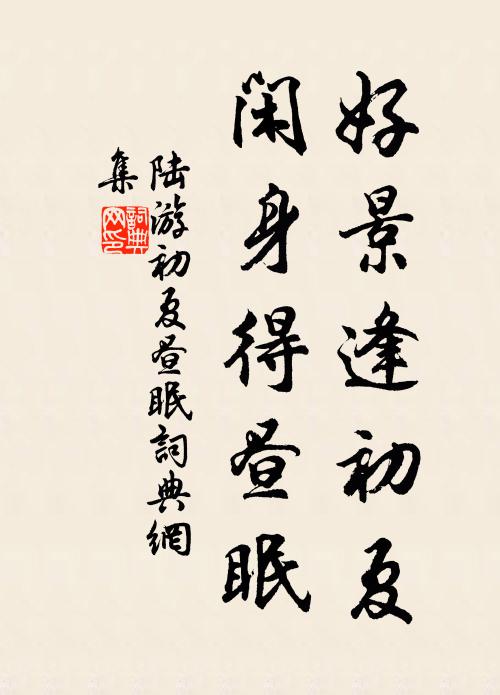 好景逢初夏
闲身得昼眠
陆游初夏昼眠词典網
集
詞典
网印